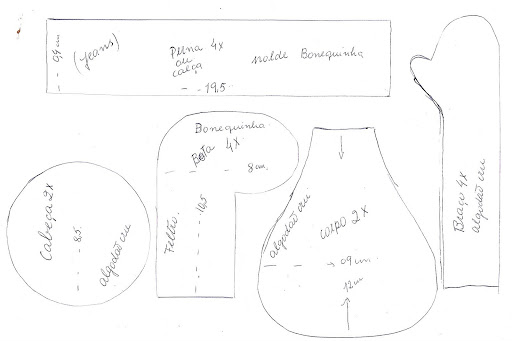 04 cm
(Jeans)
Perna 4x
ou
calça
- - 19,5
molde Bonequinha
Bonequinha
Bota 4x
8 cm
Feltro
10,5
Cabeça 2x
8,5
algodão cru
algodão cru
corpo 2x
09 cm
12 cm
Braço 4x
algodão cru